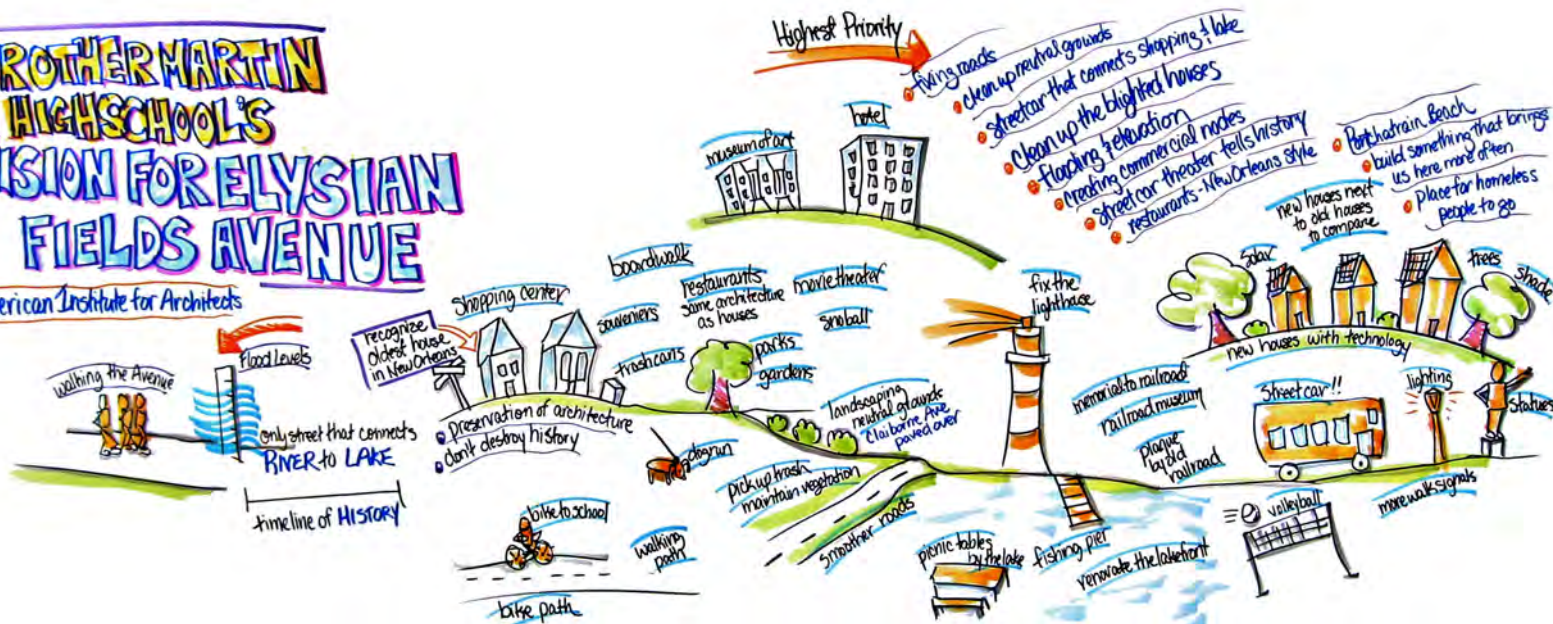 ROTHER MARTIN
HIGHSCHOOL'S
ISION FOR ELYSIAN
FIELDS AVENUE
erican Institute for Architects
walking the Avenue
Flood Levels
only street that connects
RIVER to LAKE
timeline of HISTORY
recognize
oldest house
in New Orleans
shopping center
preservation of architecture
don't destroy history
bike to school
walking
path
bike path
boardwalk
souveniers
restaurants
same architecture
as houses
movie theater
snoball
trash cans
parks
gardens
dog run
landscaping
neutral grounds
Claiborne Ave
paved over
pick up trash
maintain vegetation
smoother roads
museum of art
hotel
Highest Priority
fixing roads
clean up neutral grounds
streetcar that connects shopping & lake
clean up the blighted houses
flooding & elevation
creating commercial nodes
street car theater tells history
restaurants - New Orleans style
Pontchatrain Beach
build something that brings
us here more often
Place for homeless
people to go
new houses next
to old houses
to compare
solar
trees
shade
new houses with technology
fix the
lighthouse
memorial to railroad
railroad museum
plaque
by old
railroad
street car!!
lighting
statues
more walk signals
volleyball
picnic tables
by the lake
fishing pier
renovate the lakefront